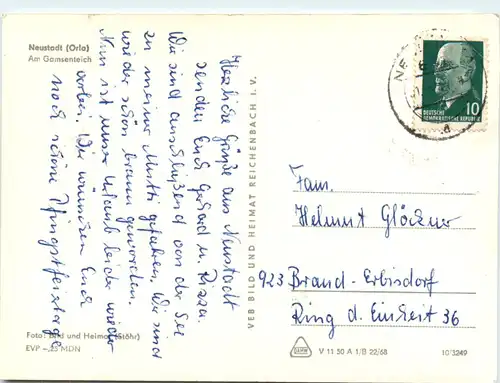 Neustadt (Orla)
Am Gamsenteich
Herzliche Grüße aus Neustadt
senden Euch Gerhard u.
Wir sind anschließend von der See
zu meiner Mutti gefahren. Wir sind
wieder schön braun geworden.
Nun ist unser Urlaub leider wieder
vorbei. Wir wünschen Euch
noch schöne Pfingstfeiertage
Foto: Bild und Heimat (Stöhr)
EVP -,25 MDN
VEB BILD UND HEIMAT REICHENBACH I. V.
10
DEUTSCHE
DEMOKRATISCHE REPUBLIK
Fam.
Helmut Glöckner
923 Brand-Erbisdorf
Ring d. Einheit 36
V 11 50 A 1/B 22/68
10/3249